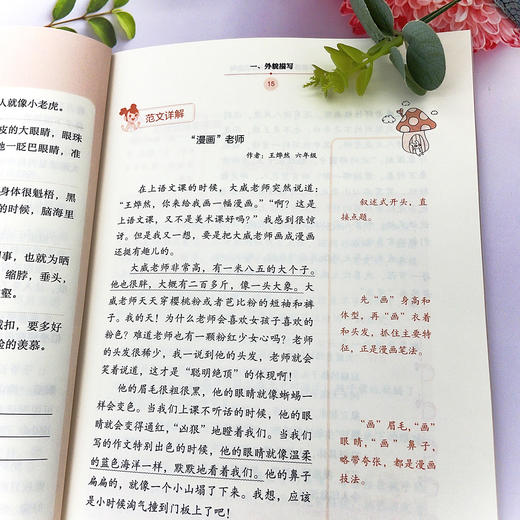 人就像小老虎。
皮的大眼睛，眼珠
他一眨巴眼睛，准
身体很魁梧，黑
的时候，脑海里
事，也就为晒
缩脖，垂头，
壑。
成扣，要多好
脸的羡慕。
一、外貌描写
15
范文详解
“漫画”老师
作者：王烨然 六年级
在上语文课的时候，大威老师突然说道：
“王烨然，你来给我画一幅漫画。”“啊？这是
上语文课，又不是美术课好吗？”我感到很惊
讶。但是我又一想，要是把大威老师画成漫画
还挺有趣儿的。
大威老师非常高，有一米八五的大个子。
他也很胖，大概有二百多斤，像一头大象。大
威老师天天穿樱桃粉或者芭比粉的短袖和裤
子。我的天！为什么老师会喜欢女孩子喜欢的
粉色？难道老师也有一颗粉红少女心吗？老师
的头发很稀少，我一说到他的头发，老师就会
笑着说道，这才是“聪明绝顶”的体现啊！
他的眉毛很粗很黑，他的眼睛就像蜥蜴一
样会变色。当我们上课不听话的时候，他的眼
睛就会变得通红，“凶狠”地瞪着我们。当我们
写的作文特别出色的时候，他的眼睛就像温柔
的蓝色海洋一样，默默地看着我们。他的鼻子
扁扁的，就像一个小山塌了下来。我想，应该
是小时候淘气撞到门板上了吧！
叙述式开头，直
接点题。
先“画”身高和
体型，再“画”衣着
和头发，抓住主要特
征，正是漫画笔法。
“画”眉毛，“画”
眼睛，“画”鼻子，
略带夸张，都是漫画
技法。